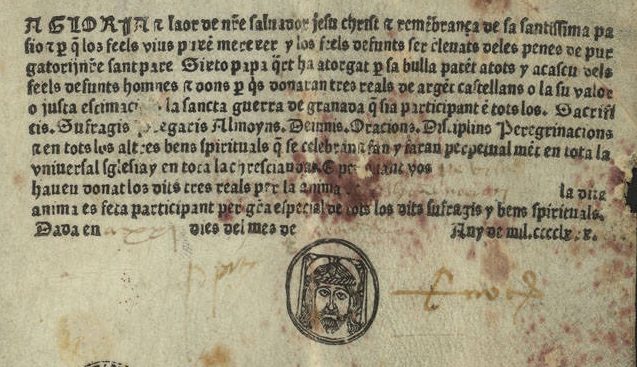 A GLORIA ⁊ laor de nr̄e saluador jesu christ ⁊ remēbrança de sa santissima pa
sio ⁊ ꝑ q̄ los feels vius pirē merexer y los feels defunts ser eleuats deles penes de pur
gatori nr̄e sant pare Sixto papa qrt ha atorgat ꝑ sa bulla patēt a tots y a cascu dels
feels defunts homnes ⁊ dons ꝑ qs donaran tres reals de argēt castellans o la su valor
o justa estimacio la sancta guerra de granada q̄ sia participant ē tots los. Sacrifi
cis. Sufragis Almoyns. Deiunis. Oracions. Disciplins Peregrinacions
⁊ en tots los altres bens spirituals q̄ se celebran fan y faran perpetual mēt en tota la
vniuersal sglesia y en tota la chrestiandat. E per quant vos
haueu donat los dits tres reals per la anima de la dita
anima es feta participant per gr̄a especial de tots los dits sufragis y bens spirituals.
Dada en dies del mes de Any de mil.cccclxx.